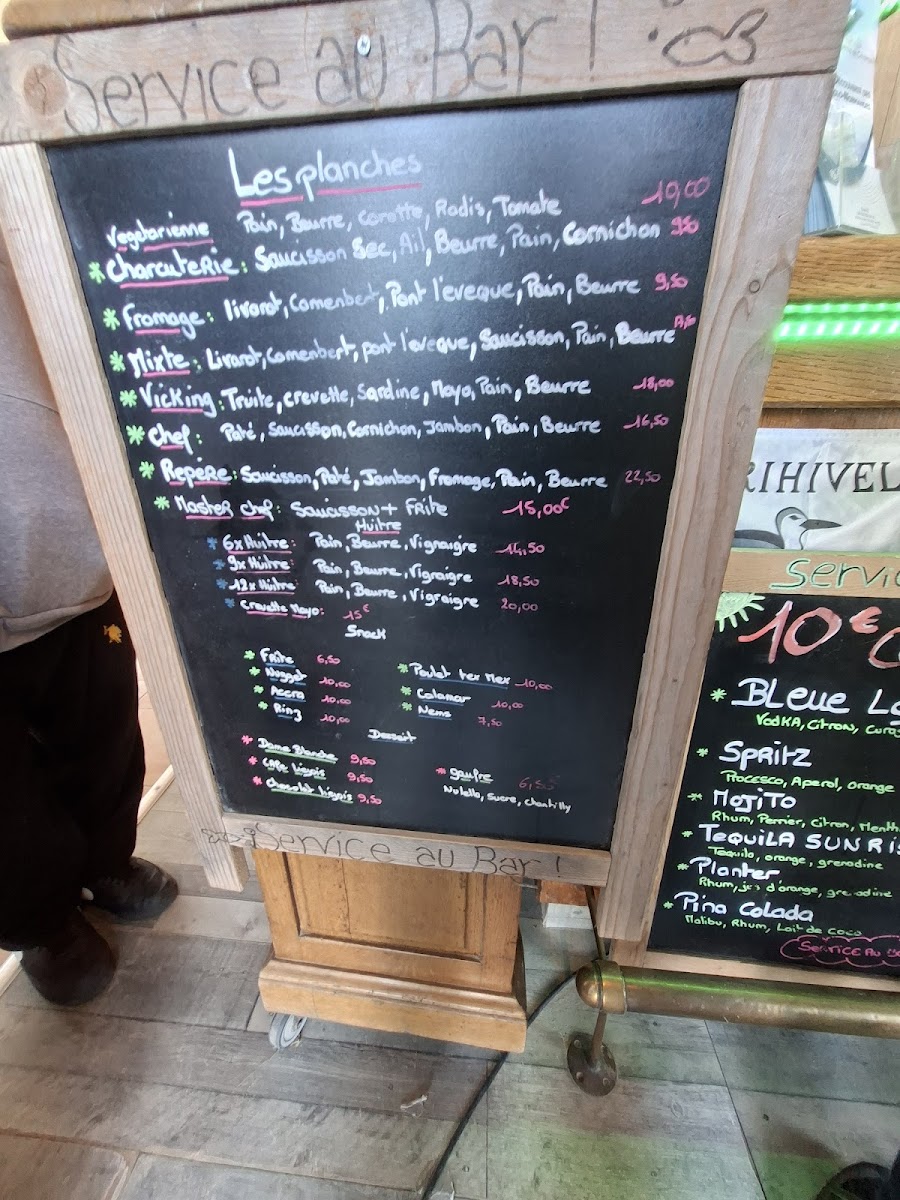 Service au Bar !
Les planches
Vegetarienne Pain, Beurre, Carotte, Radis, Tomate 10,00
Charcuterie: Saucisson Sec, Ail, Beurre, Pain, Cornichon 9,50
Fromage: livarot, Camenbert, Pont l'eveque, Pain, Beurre 9,50
Mixte: Livarot, Camenbert, pont l'aveque, Saucisson, Pain, Beurre
Vicking: Truite, crevette, Sardine, Mayo, Pain, Beurre 18,00
Chef: Paté, Saucisson, Cornichon, Jambon, Pain, Beurre 16,50
Repère: Saucisson, Paté, Jambon, Fromage, Pain, Beurre 22,50
Master chef: Saucisson + Frite 15,00€
Huitre
6x Huitre: Pain, Beurre, Vignaigre 14,50
9x Huitre: Pain, Beurre, Vigraigre 18,50
12x Huitre: Pain, Beurre, Vigraigre 20,00
Crevette Mayo: 15€
Snack
Frite 6,50
Nugget 10,00
Accra 10,00
Ring 10,00
Poulet tex Mex 10,00
Calamar 10,00
Nems 7,50
Dessert
Dame Blanche 9,50
Café liégois 9,50
Chocolat liégois 9,50
gaufre 6,50
Nutella, sucre, chantilly
Service au Bar !
RIHIVEL
Servic
10€
BLeue La
Vodka, Citron, cura
Spritz
Procesco, Aperol, orange
Mojito
Rhum, Perrier, Citron, Menth
Tequila SUNRIS
Tequila, orange, grenadine
Planter
Rhum, jus d'orange, grenadine
Pina Colada
Malibu, Rhum, Lait de Coco
Service Au